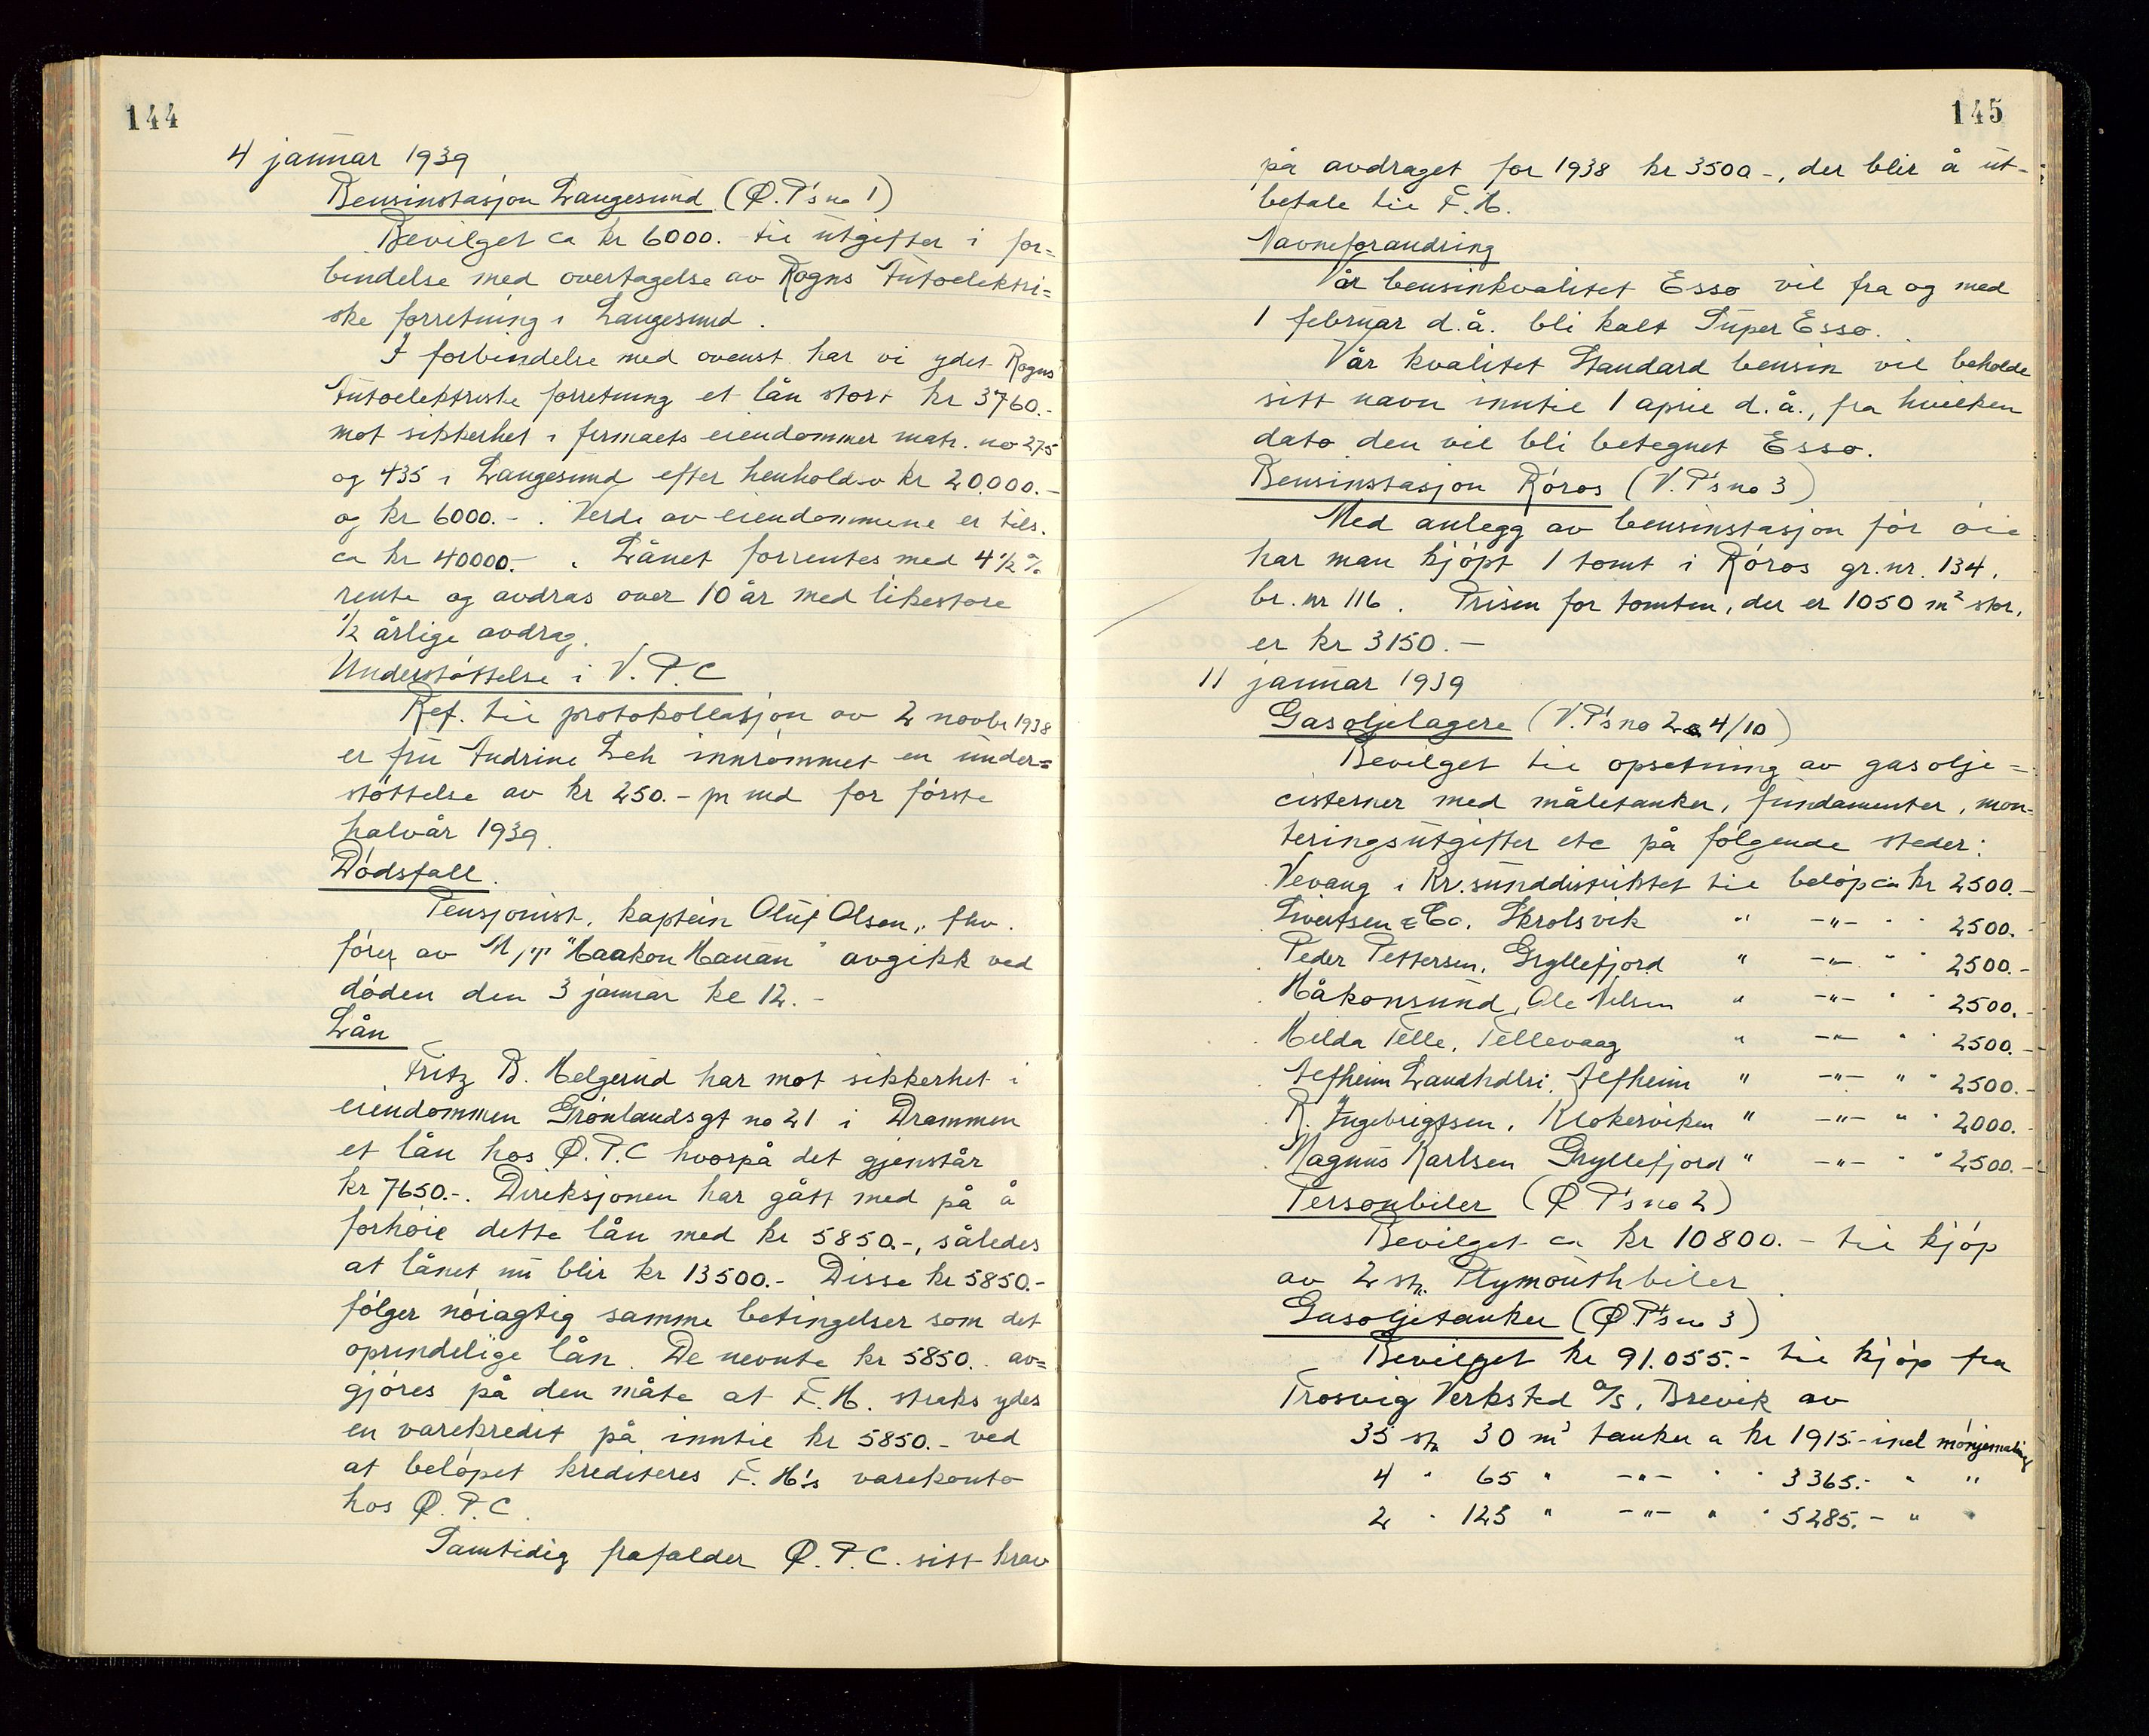 144
4 januar 1939
Bensinstasjon Langesund (Ø.P's no 1)
Bevilget ca kr 6000.- til utgifter i for=
bindelse med overtagelse av Rogns Autoelektri=
ske forretning i Langesund.
I forbindelse med ovenst. har vi ydet Rogns
Autoelektriske forretning et lån stort kr 3760.-
mot sikkerhet i firmaets eiendommer matr. no 275
og 435 i Langesund efter henholdsv kr 20.000.-
og kr 6000.-. Verdi av eiendommene er tils.
ca kr 40000.-. Lånet forrentes med 4 1/2 %
rente og avdras over 10 år med likestore
1/2 årlige avdrag.
Understøttelse i V.P.C
Ref. til protokollasjon av 2 novbr 1938
er fru Andrine Leh innrømmet en under=
støttelse av kr 250.- pr md for første
halvår 1939.
Dødsfall.
Pensjonist, kaptein Oluf Olsen, fhv.
fører av M/T "Haakon Hauan" avgikk ved
døden den 3 januar kl 12.-
Lån
Fritz B. Helgerud har mot sikkerhet i
eiendommen Grønlandsgt no 21 i Drammen
et lån hos Ø.P.C hvorpå det gjenstår
kr 7650.-. Direksjonen har gått med på å
forhøie dette lån med kr 5850.-, således
at lånet nu blir kr 13500.- Disse kr 5850.-
følger nøiagtig samme betingelser som det
oprindelige lån. De nevnte kr 5850.- av=
gjøres på den måte at F.H. straks ydes
en varekredit på inntil kr 5850.- ved
at beløpet krediteres F.H's varekonto
hos Ø.P.C.
Samtidig frafalder Ø.P.C. sitt krav
145
på avdraget for 1938 kr 3500-, der blir å ut-
betale til F.H.
Navneforandring
Vår bensinkvalitet Esso vil fra og med
1 februar d.å. bli kalt Super Esso.
Vår kvalitet Standard bensin vil beholde
sitt navn inntil 1 april d.å., fra hvilken
dato den vil bli betegnet Esso.
Bensinstasjon Røros (V.P's no 3)
Med anlegg av bensinstasjon for øie
har man kjøpt 1 tomt i Røros gr.nr. 134,
br.nr 116. Prisen for tomten, der er 1050 m² stor,
er kr 3150.-
11 januar 1939
Gasoljelagere (V.P's no 2 a 4/10)
Bevilget til opsetning av gasolje=
cisterner med måletanker, fundamenter, mon-
teringsutgifter etc på følgende steder:
Vevang i Kr.sunddistriktet til beløp ca kr 2500.-
Sivertsen & Co. Skrolsvik " -"- " " 2500.-
Peder Pettersen, Gryllefjord " -"- " " 2500.-
Håkonsund, Ole Nilsen " -"- " " 2500.-
Hilda Telle, Tellevaag " -"- " " 2500.-
Alfheim Landhdlri. Alfheim " -"- " " 2500.-
R. Ingebrigtsen, Klokerviken " -"- " " 2000.-
Magnus Karlsen Gryllefjord " -"- " " 2500.-
Personbiler (Ø P's no 2)
Bevilget ca kr 10800.- til kjøp
av 2 st. Plymouthbiler.
Gasoljetanker (Ø P's no 3)
Bevilget kr 91.055.- til kjøp fra
Trosvig Verksted A/S, Brevik av
35 st 30 m³ tanker a kr 1915.- incl mønjemaling
4 " 65 " -"- " " 3365.- " "
2 " 125 " -"- " " 5285.- " "